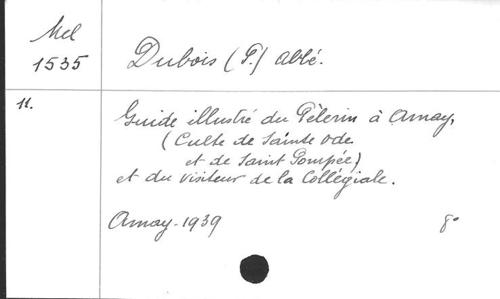 Mel
1535
Dubois (P.) Abbé.
11.
Guide illustré du Pèlerin à Amay,
(Culte de Sainte Ode
et de Saint Pompée)
et du visiteur de la Collégiale.
Amay-1939
8°